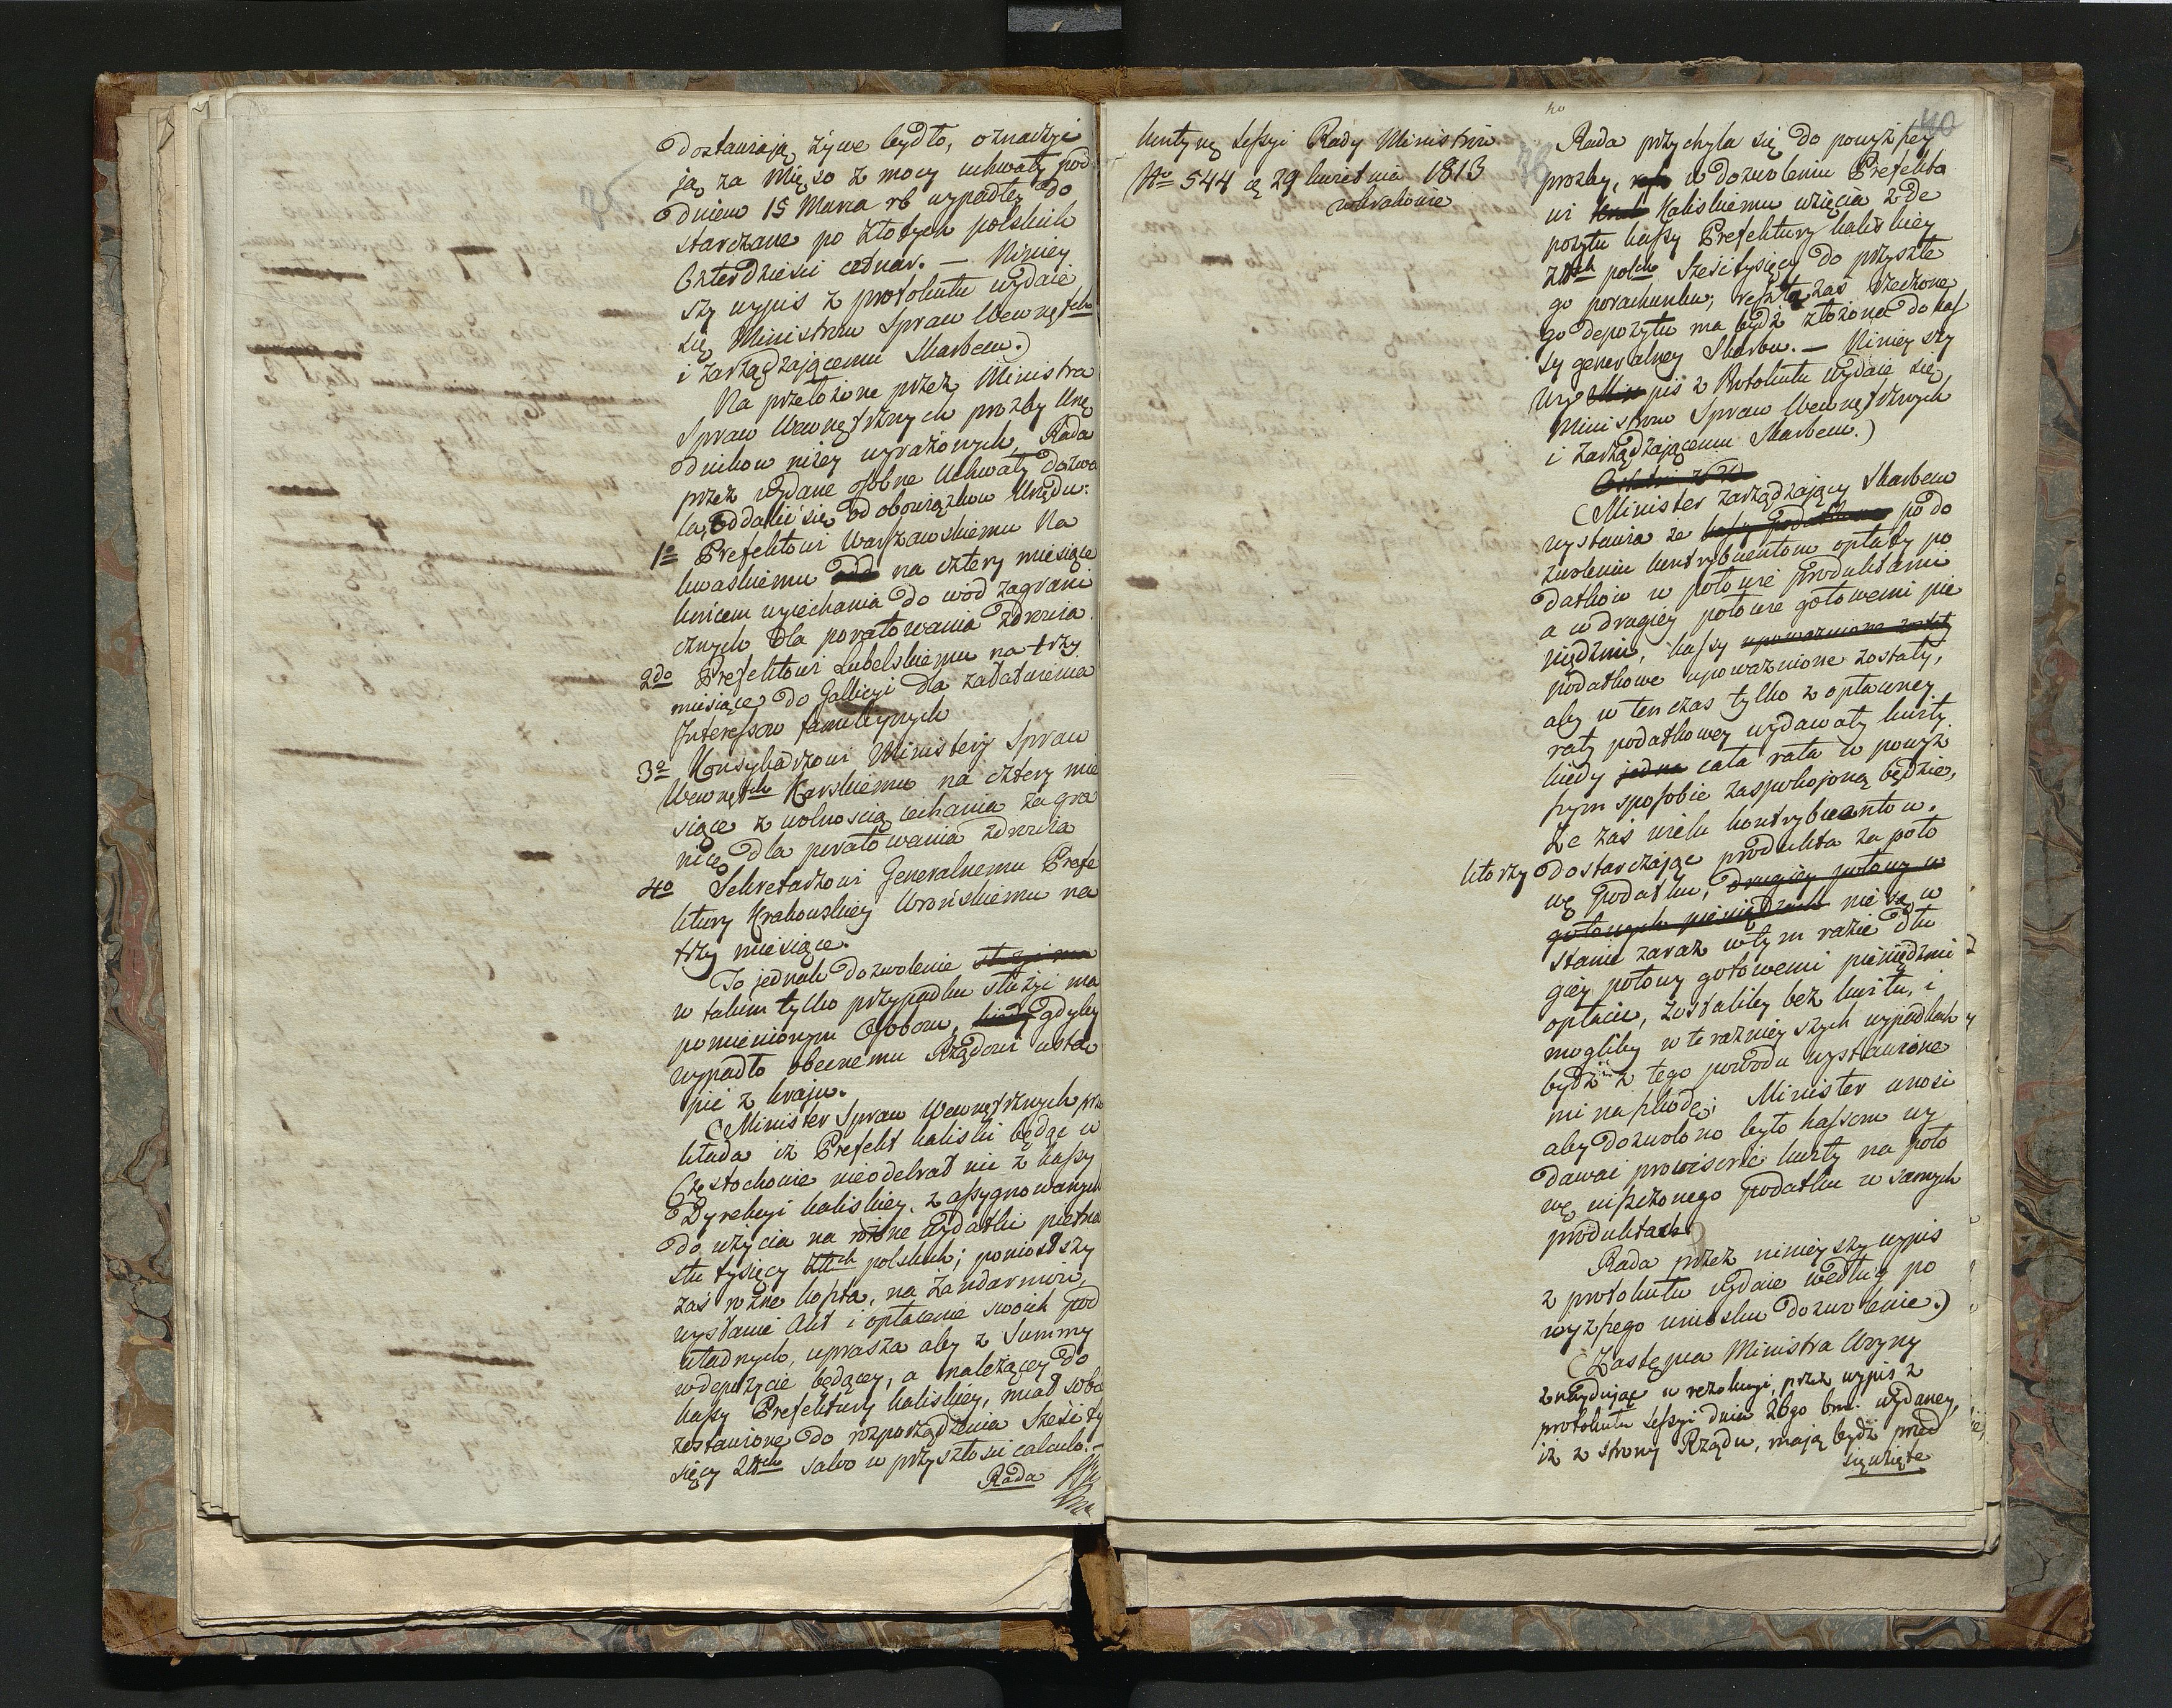 dostawiają żywe bydło, o znadzyi
ją za mięso z mocy uchwały pod
dniem 15 Marca rb wypadłey do
starczane po złotych polskich
Czterdzieści cetnar. — Niniey
szy wypis z protokułu wydaie
się Ministrom Spraw Wewnętch
i zarządzającemu Skarbem.)
Na przełożone przez Ministra
Spraw Wewnętrznych prozby Urzę
dnikow niżey wyrażonych, Rada
przez wydane osobne Uchwały dozwa
la, oddalić się od obowiązkow Urzędu:
1o Prefektowi Warszawskiemu Na
kwaskiemu na cztery miesiące
końcem wyiechania do wód zagrani
cznych dla poratowania zdrowia
2do Prefektowi Lubelskiemu na trzy
miesiące do Gallicyi dla załatwienia
Interessow familijnych
3o Konsyliarzowi Ministerij Spraw
Wewnętch Karskiemu na cztery mie
siące z wolnością iechania za gra
nicę dla poratowania zdrowia
4o Sekretarzowi Generalnemu Prefe
ktury Krakowskiey Wrońskiemu na
trzy miesiące.
To jednak dozwolenie służyi ma
w takim tylko przypadku służyi ma
pomienionym Osobom, gdyby
wypadło obecnemu Rządowi ustą
pić z kraju.
(Minister Spraw Wewnętrznych prze
kłada iż Prefekt kaliski będąc w
Częstochowie nieodebrał nic z kassy
Dyrekcyi kaliskiey, z assygnowanych
do użycia na rożne wydatki pietna
stu tysięcy Złtch polskich; poniosłszy
zaś rożne koszta, na żandarmów,
wysłanie Akt i opłacenie swoich pod
władnych, uprasza aby z Summy
w depozycie będącey, a należącey do
kassy Prefektury kaliskiey, miał sobie
zostawione do rozporządzenia Sześć ty
sięcy Złtch salvo w przyszłości calculo. —
Rada
Kontynuę Sessyi Rady Ministrów
No 544 z 29 kwietnia 1813
w krakowie
40
40
Rada przychyla się do powyższey
prozby, w dozwoleniu Prefekto
wi Kaliskiemu wzięcia z de
pozytu kassy Prefektury kaliskiey
złtch polch Sześć tysięcy do przyszłe
go porachunku; reszta zaś rzeczone
go depozytu ma bydź złożona do kas
sy generalney Skarbu. — Niniey szy
wy pis z Protokułu wydaie się
Ministrom Spraw Wewnętrznych
i zarządzającemu Skarbem.)
(Minister zarządzający Skarbem
wystawia że kassy podatkowe po do
zwoleniu kontrybuentom opłaty po
datkow w połowie produktami
a w drugiey połowie gotowemi pie
niędzmi, kassy upoważnione zostały
podatkowe upoważnione zostały,
aby w ten czas tylko z opłaconey
raty podatkowey wydawały kwity.
kiedy jedna cała rata w powyż
szym sposobie zaspokojoną będzie,
że zaś wielu kontrybuentow.
ktorzy dostarczając produkta za poło
wę podatku, drugiey połowy w
gotowych pieniędzach nie są w
stanie zaraz w tym razie dru
giey połowy gotowemi pieniędzmi
opłacić, zostaliby bez kwitu, i
mogliby w teraznieyszych wypadkach
bydź z tego powodu wystawione
mi na szkodę; Minister wnosi
aby dozwolono było kassom wy
dawać prowisorie kwity na poło
wę niszczonego podatku w samych
produktach.
Rada przez ninieyszy wypis
z protokułu wydaie według po
wyższego wniosku dozwolenie.)
(Zastępca Ministra Woyny
znaydując w rezolucyi, przez wypis z
protokułu sessyi dnia 26go bm. wydaney,
iż z strony Rządu, mają bydź przed
sięwzięte